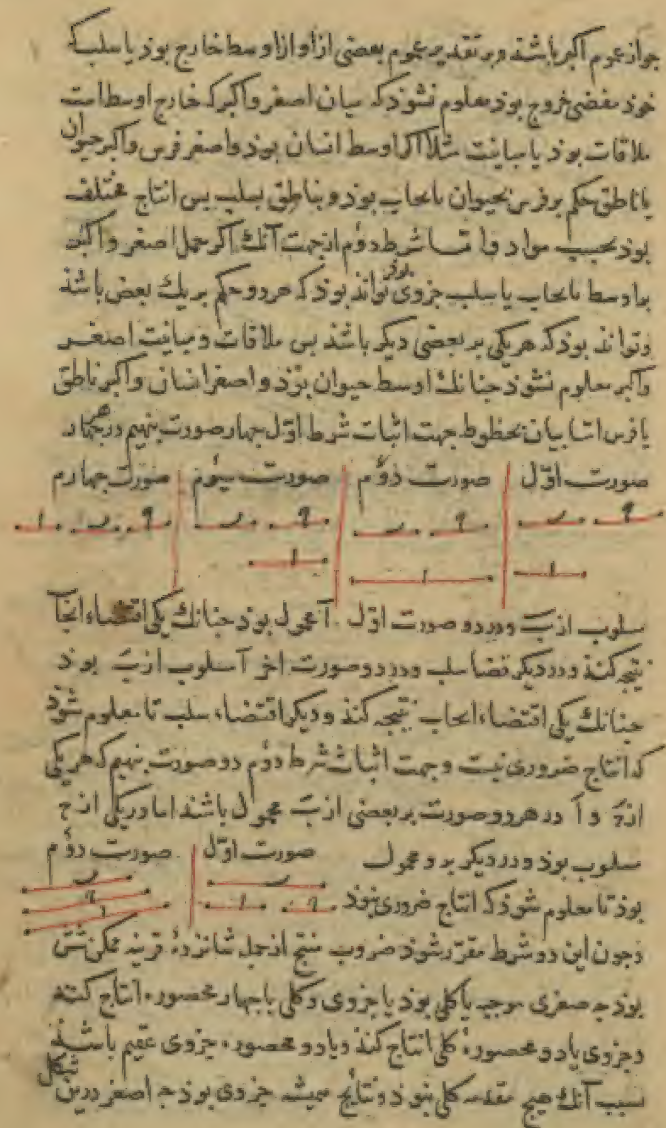 جواز عموم اکبر باشد و بر تقدیر عموم بعضی ازاو از اوسط خارج بوذ یا سلب که
خوذ مقتضی خروج بوذ معلوم نشوذ که میان اصغر و اکبر که خارج اوسط است
ملاقات بوذ یا مباینت مثلا اکر اوسط انسان بوذ و اصغر فرس و اکبر حیوان
یا ناطق حکم بر فرس بحیوان بایجاب بوذ و بناطق بسلب بس انتاج مختلف
بوذ بحسب مواد و اما شرط دوم از جهت آنک اکر حمل اصغر و اکبر
بر اوسط بایجاب یا سلب جزوی بوذ تواند بوذ که هر دو حکم بر یک بعض باشذ
و تواند بوذ که هر یکی بر بعضی دیکر باشذ بس ملاقات و مباینت اصغر
و اکبر معلوم نشوذ جنانک اوسط حیوان بوذ و اصغر انسان و اکبر ناطق
یا فرس اما بیان بخطوط جهت اثبات شرط اول جهار صورت بنهیم در هر جهار
صورت اول صورت دوم صورت سیوم صورت جهارم
مسلوب از ب و در دو صورت اول آ محمول بوذ جنانک یکی اقتضاء ایجاب
نتیجه کند و در دیکر اقتضا سلب و در دو صورت اخر آ مسلوب از ب بوذ
جنانک یکی اقتضاء ایجاب نتیجه کند و دیکر اقتضاء سلب تا معلوم شوذ
که انتاج ضروری نیست و جهت اثبات شرط دوم دو صورت بنهیم که هر یکی
از ج و آ در هر دو صورت بر بعضی از ب محمول باشند اما در یکی از ج
صورت اول صورت دوم
مسلوب بوذ و در دیکر برو محمول
بوذ تا معلوم شوذ که انتاج ضروری نبوذ
و جون این دو شرط مقرر شوذ ضروب منتج از جمله شانزده قرینه ممکن شش
بوذ جه صغری موجبه یا کلی بوذ یا جزوی و کلی با جهار محصوره انتاج کند
و جزوی با دو محصوره کلی انتاج کند و با دو محصوره جزوی عقیم باشذ
سبب آنک هیج مقدمه کلی نبوذ و نتایج همیشه جزوی بوذ جه اصغر درین شکل